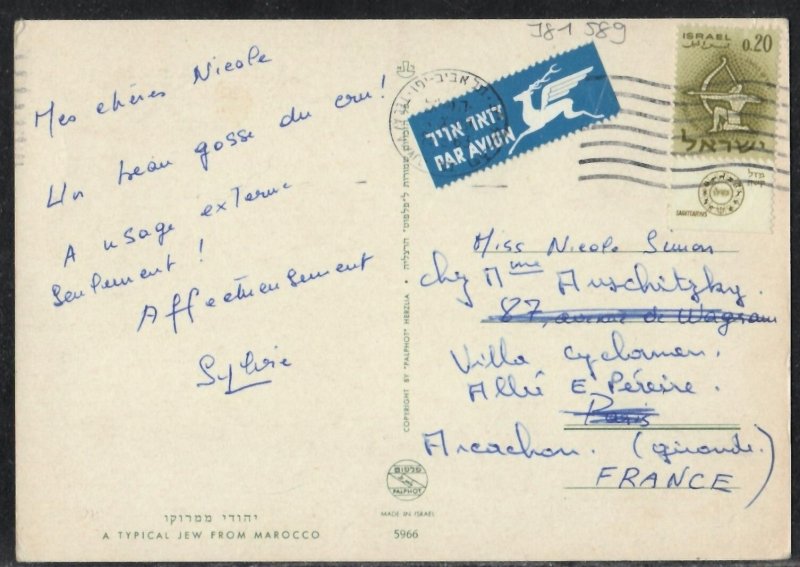 J81 589
Mes chères Nicole
Un beau gosse du cru!
A usage externe
seulement!
Affectueusement
Sylvie
יהודי ממרוקו
A TYPICAL JEW FROM MAROCCO
COPYRIGHT BY "PALPHOT" HERZLIA • כל הזכויות שמורות ל"פלפוט" הרצליה
פלפוט
PALPHOT
MADE IN ISRAEL
5966
תל אביב-יפו
דואר אויר
PAR AVION
ISRAEL
0.20
ישראל
מזל
קשת
SAGITTARIUS
Miss Nicole Simon
chez Mme Auschitzky.
87, avenue de Wagram
Villa Cyclamen.
Allée E. Péreire.
Paris
Arcachon. (gironde.)
FRANCE